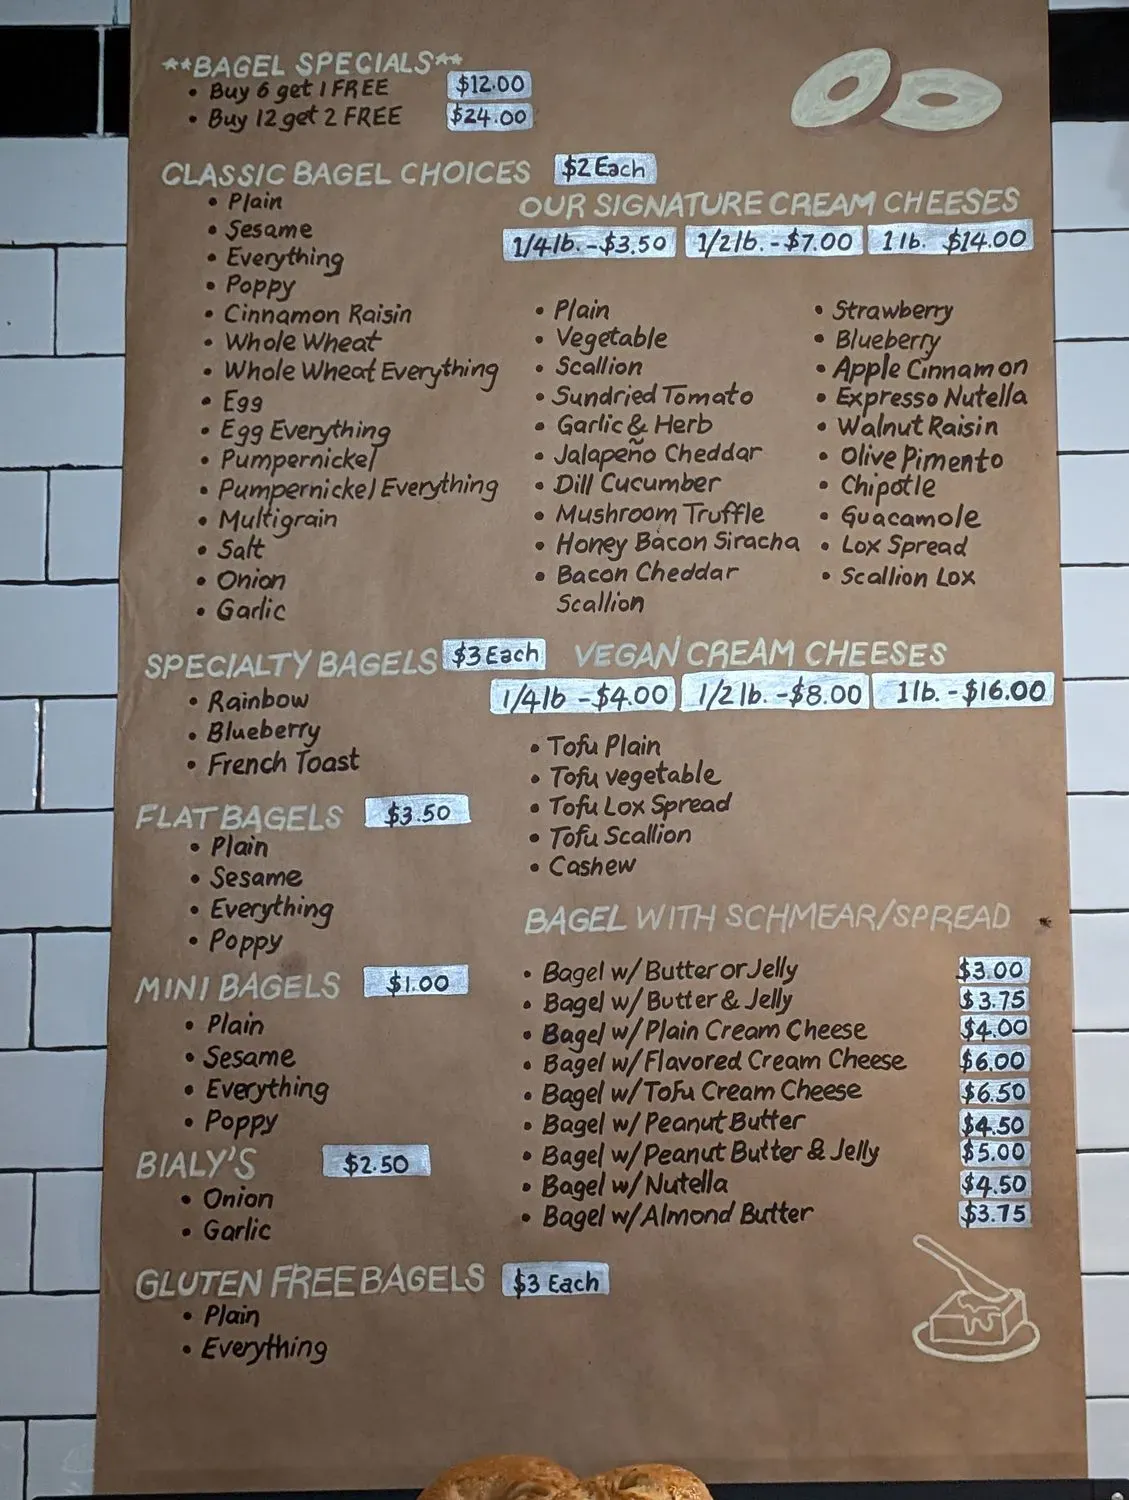 **BAGEL SPECIALS**
• Buy 6 get 1 FREE $12.00
• Buy 12 get 2 FREE $24.00
CLASSIC BAGEL CHOICES $2 Each
• Plain
• Sesame
• Everything
• Poppy
• Cinnamon Raisin
• Whole Wheat
• Whole Wheat Everything
• Egg
• Egg Everything
• Pumpernickel
• Pumpernickel Everything
• Multigrain
• Salt
• Onion
• Garlic
SPECIALTY BAGELS $3 Each
• Rainbow
• Blueberry
• French Toast
FLAT BAGELS $3.50
• Plain
• Sesame
• Everything
• Poppy
MINI BAGELS $1.00
• Plain
• Sesame
• Everything
• Poppy
BIALY'S $2.50
• Onion
• Garlic
GLUTEN FREE BAGELS $3 Each
• Plain
• Everything
OUR SIGNATURE CREAM CHEESES
1/4 lb. - $3.50 1/2 lb. - $7.00 1 lb. $14.00
• Plain
• Vegetable
• Scallion
• Sundried Tomato
• Garlic & Herb
• Jalapeño Cheddar
• Dill Cucumber
• Mushroom Truffle
• Honey Bacon Siracha
• Bacon Cheddar
Scallion
• Strawberry
• Blueberry
• Apple Cinnamon
• Expresso Nutella
• Walnut Raisin
• Olive Pimento
• Chipotle
• Guacamole
• Lox Spread
• Scallion Lox
VEGAN CREAM CHEESES
1/4 lb - $4.00 1/2 lb. - $8.00 1 lb. - $16.00
• Tofu Plain
• Tofu vegetable
• Tofu Lox Spread
• Tofu Scallion
• Cashew
BAGEL WITH SCHMEAR/SPREAD
• Bagel w/ Butter or Jelly $3.00
• Bagel w/ Butter & Jelly $3.75
• Bagel w/ Plain Cream Cheese $4.00
• Bagel w/ Flavored Cream Cheese $6.00
• Bagel w/ Tofu Cream Cheese $6.50
• Bagel w/ Peanut Butter $4.50
• Bagel w/ Peanut Butter & Jelly $5.00
• Bagel w/ Nutella $4.50
• Bagel w/ Almond Butter $3.75